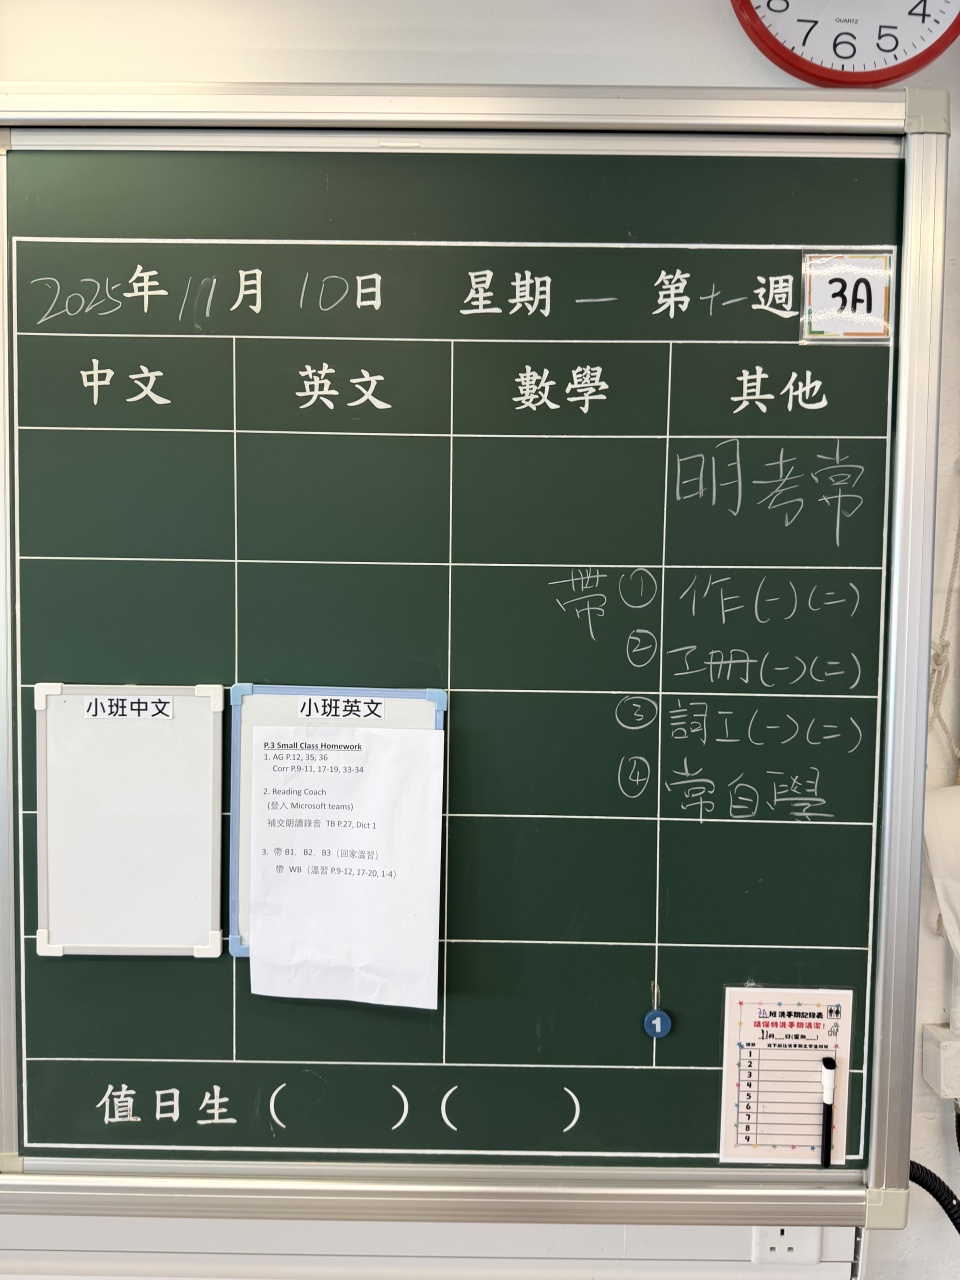 8 7 6 5 4
QUARTZ
2025年11月10日 星期一 第十一週 3A
中文 英文 數學 其他
明考常
帶 ① 作(一)(二)
② 工冊(一)(二)
③ 詞工(一)(二)
④ 常自學
小班中文
小班英文
P.3 Small Class Homework
1. AG P.12, 35, 36
Corr P.9-11, 17-19, 33-34
2. Reading Coach
(登入 Microsoft teams)
補交朗讀錄音 TB P.27, Dict 1
3. 帶 B1、B2、B3（回家溫習）
帶 WB（溫習 P.9-12, 17-20, 1-4）
1
3A班洗手間記錄表
請保持洗手間清潔！
月 日(星期 )
1
2
3
4
5
6
7
8
9
值日生（ ）（ ）